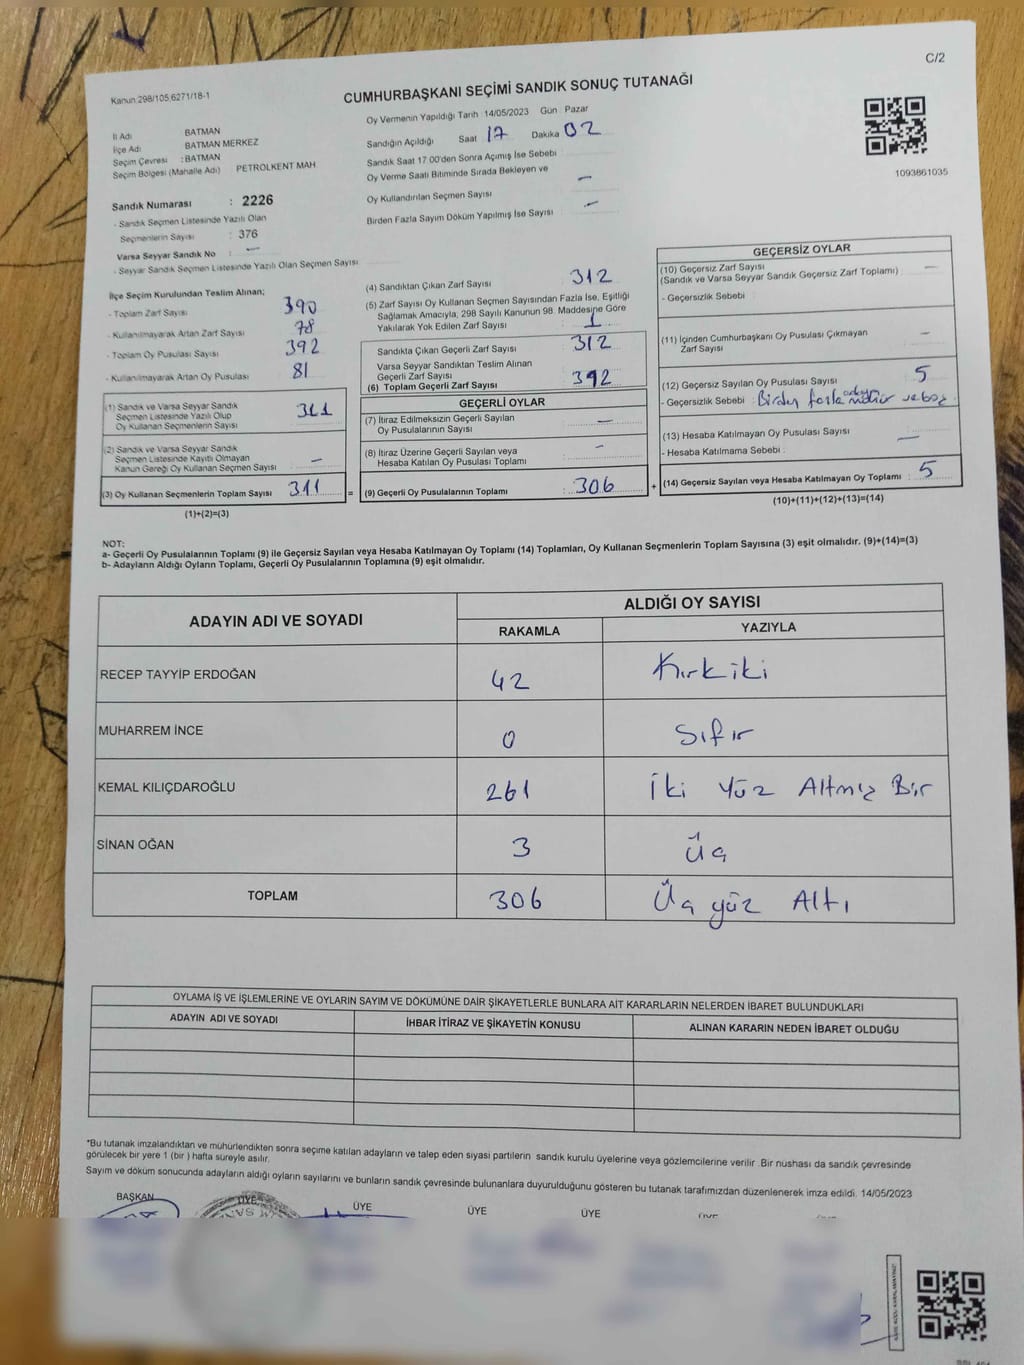 C/2
Kanun:298/105,6271/18-1
CUMHURBAŞKANI SEÇİMİ SANDIK SONUÇ TUTANAĞI
İl Adı BATMAN
İlçe Adı BATMAN MERKEZ
Seçim Çevresi : BATMAN
Seçim Bölgesi (Mahalle Adı) PETROLKENT MAH
Oy Vermenin Yapıldığı Tarih 14/05/2023 Gün Pazar
Sandığın Açıldığı Saat 17 Dakika 02
Sandık Saat 17.00'den Sonra Açımış İse Sebebi
Oy Verme Saati Bitiminde Sırada Bekleyen ve
Oy Kullandırılan Seçmen Sayısı —
Birden Fazla Sayım Döküm Yapılmış İse Sayısı —
1093861035
Sandık Numarası : 2226
- Sandık Seçmen Listesinde Yazılı Olan
Seçmenlerin Sayısı : 376
Varsa Seyyar Sandık No : —
- Seyyar Sandık Seçmen Listesinde Yazılı Olan Seçmen Sayısı
İlçe Seçim Kurulundan Teslim Alınan;
- Toplam Zarf Sayısı 390
- Kullanılmayarak Artan Zarf Sayısı 78
- Toplam Oy Pusulası Sayısı 392
- Kullanılmayarak Artan Oy Pusulası 81
(1) Sandık ve Varsa Seyyar Sandık
Seçmen Listesinde Yazılı Olup
Oy Kullanan Seçmenlerin Sayısı 311
(2) Sandık ve Varsa Seyyar Sandık
Seçmen Listesinde Kayıtlı Olmayan
Kanun Gereği Oy Kullanan Seçmen Sayısı —
(3) Oy Kullanan Seçmenlerin Toplam Sayısı 311 =
(1)+(2)=(3)
(4) Sandıktan Çıkan Zarf Sayısı 312
(5) Zarf Sayısı Oy Kullanan Seçmen Sayısından Fazla İse, Eşitliği
Sağlamak Amacıyla, 298 Sayılı Kanunun 98. Maddesine Göre
Yakılarak Yok Edilen Zarf Sayısı 1
Sandıkta Çıkan Geçerli Zarf Sayısı 312
Varsa Seyyar Sandıktan Teslim Alınan
Geçerli Zarf Sayısı
(6) Toplam Geçerli Zarf Sayısı 392
GEÇERLİ OYLAR
(7) İtiraz Edilmeksizin Geçerli Sayılan
Oy Pusulalarının Sayısı —
(8) İtiraz Üzerine Geçerli Sayılan veya
Hesaba Katılan Oy Pusulası Toplamı —
(9) Geçerli Oy Pusulalarının Toplamı : 306 +
GEÇERSİZ OYLAR
(10) Geçersiz Zarf Sayısı —
(Sandık ve Varsa Seyyar Sandık Geçersiz Zarf Toplamı)
- Geçersizlik Sebebi
(11) İçinden Cumhurbaşkanı Oy Pusulası Çıkmayan
Zarf Sayısı —
(12) Geçersiz Sayılan Oy Pusulası Sayısı 5
- Geçersizlik Sebebi : Birden fazla mühür ve boş
(13) Hesaba Katılmayan Oy Pusulası Sayısı —
- Hesaba Katılmama Sebebi
(14) Geçersiz Sayılan veya Hesaba Katılmayan Oy Toplamı : 5
(10)+(11)+(12)+(13)=(14)
NOT:
a- Geçerli Oy Pusulalarının Toplamı (9) ile Geçersiz Sayılan veya Hesaba Katılmayan Oy Toplamı (14) Toplamları, Oy Kullanan Seçmenlerin Toplam Sayısına (3) eşit olmalıdır. (9)+(14)=(3)
b- Adayların Aldığı Oyların Toplamı, Geçerli Oy Pusulalarının Toplamına (9) eşit olmalıdır.
ADAYIN ADI VE SOYADI ALDIĞI OY SAYISI
RAKAMLA YAZIYLA
RECEP TAYYİP ERDOĞAN 42 Kırkiki
MUHARREM İNCE 0 Sıfır
KEMAL KILIÇDAROĞLU 261 İki Yüz Altmış Bir
SİNAN OĞAN 3 Üç
TOPLAM 306 Üç yüz Altı
OYLAMA İŞ VE İŞLEMLERİNE VE OYLARIN SAYIM VE DÖKÜMÜNE DAİR ŞİKAYETLERLE BUNLARA AİT KARARLARIN NELERDEN İBARET BULUNDUKLARI
ADAYIN ADI VE SOYADI İHBAR İTİRAZ VE ŞİKAYETİN KONUSU ALINAN KARARIN NEDEN İBARET OLDUĞU
*Bu tutanak imzalandıktan ve mühürlendikten sonra seçime katılan adayların ve talep eden siyasi partilerin sandık kurulu üyelerine veya gözlemcilerine verilir .Bir nüshası da sandık çevresinde
görülecek bir yere 1 (bir ) hafta süreyle asılır.
Sayım ve döküm sonucunda adayların aldığı oyların sayılarını ve bunların sandık çevresinde bulunanlara duyurulduğunu gösteren bu tutanak tarafımızdan düzenlenerek imza edildi. 14/05/2023
BAŞKAN ÜYE ÜYE ÜYE ÜYE